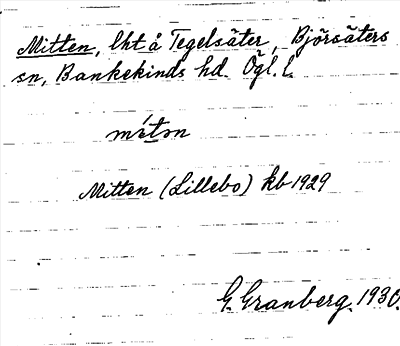 Mitten, lht å Tegelsäter, Björsäters
sn, Bankekinds hd. Ögl. l.
méton
Mitten (Lillebo) kb 1929
G. Granberg. 1930.